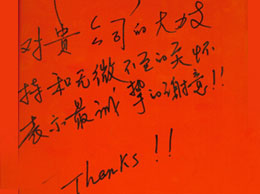 对貴公司的大力支
持和无微不至的关怀
表示最诚挚的谢意!!
Thanks!!